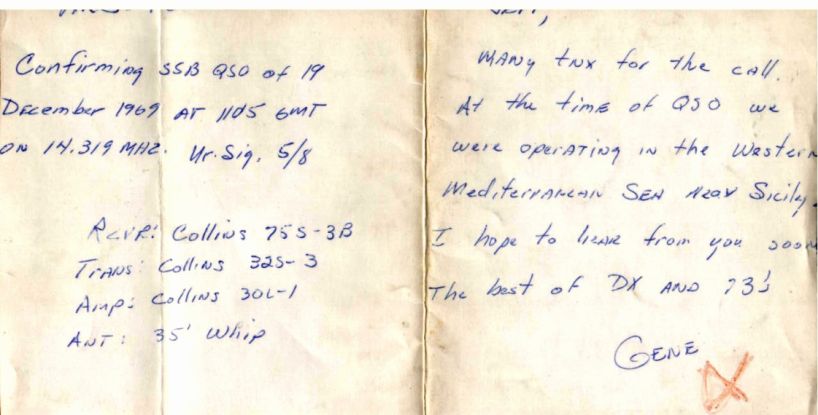 Confirming SSB QSO of 19
December 1969 AT 1105 GMT
ON 14.319 MHZ. Ur. Sig. 5/8
RCVR: Collins 75S-3B
TRANS: Collins 32S-3
Amp: Collins 30L-1
ANT: 35' Whip
MANY tnx for the call.
At the time of QSO we
were operATING in the Western
MediterrANEAN SEA NEAR Sicily.
I hope to hear from you soon
The best of DX AND 73's
GENE